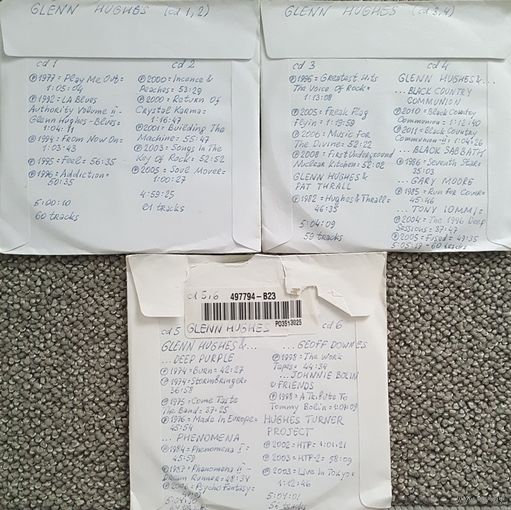 GLENN HUGHES (cd 1,2)
cd 1
℗1977=Play Me Out=
1:05:04
℗1992=LA Blues
Authority Volume II-
Glenn Hughes-Blues=
1:04:11
℗1994=From Now On=
1:03:43
℗1995=Feel=56:35
℗1996=Addiction=
50:35
5:00:10
60 tracks
cd 2
℗2000=Incense &
Peaches=53:29
℗2000=Return Of
Crystal Karma=
1:16:47
℗2001=Building The
Machine=55:47
℗2003=Songs In The
Key Of Rock=52:52
℗2005=Soul Mover=
1:00:27
4:59:25
61 tracks
GLENN HUGHES (cd 3,4)
cd 3
℗1996=Greatest Hits
The Voice Of Rock=
1:13:08
℗2005=Freak Flag
Flyin=1:19:59
℗2006=Music For
The Divine=52:22
℗2008=First Underground
Nuclear Kitchen=52:02
GLENN HUGHES &
PAT THRALL
℗1982=Hughes & Thrall=
46:35
5:04:09
59 tracks
cd 4
GLENN HUGHES &...
...BLACK COUNTRY
COMMUNION
℗2010=Black Country
Communion=1:12:40
℗2011=Black Country
Communion II=1:04:26
...BLACK SABBATH
℗1986=Seventh Star=
35:03
...GARY MOORE
℗1985=Run For Cover=
45:46
...TONY IOMMI=
℗2004=The 1996 Deep
Sessions=37:47
℗2005=Fused=49:35
60 tracks
cd 5,6
497794-B23
P03513025
GLENN HUGHES
cd 5
GLENN HUGHES &...
...DEEP PURPLE
℗1974=Burn=42:27
℗1974=Stormbringer=
36:58
℗1975=Come Taste
The Band=37:25
℗1976=Made In Europe=
45:54
...PHENOMENA
℗1984=Phenomena I=
45:59
℗1987=Phenomena II-
Dream Runner=48:34
Psycho Fantasy=
cd 6
...GEOFF DOWNES
℗1998=The Work
Tapes=44:34
...JOHNNIE BOLIN
& FRIENDS
℗1998=A Tribute To
Tommy Bolin=
HUGHES TURNER
PROJECT
℗2002=HTP=1:01:21
℗2003=HTP-2=58:09
℗2003=Live In Tokyo=
1:12:46
5:01:01